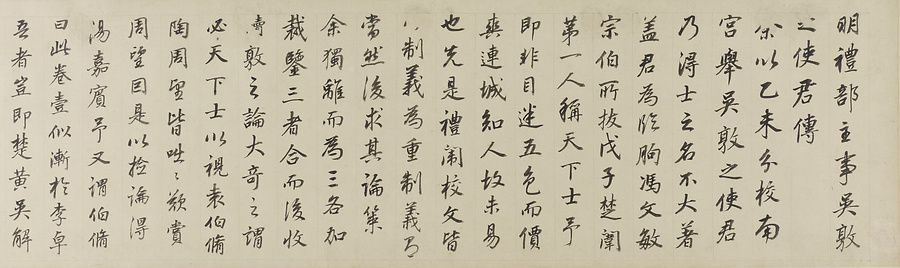 明禮部主事吳敦
之使君傳
余以乙未分校南
宮舉吳敦之使君
乃得士之名不大著
蓋君為臨朐馮文敏
宗伯所拔戊子楚闈
第一人稱天下士予
即非目迷五色而價
爽連城知人故未易
也先是禮闈校文皆
以制義為重制義可
當然後求其論策
余獨離而為三各加
裁鑒三者合而後收
得敦之論大奇之謂
必天下士以視袁伯脩
陶周望皆咄咄歎賞
周望因是以拾論得
湯嘉賓予又謂伯脩
曰此卷壹似漸於李卓
吾者豈即楚黃吳解